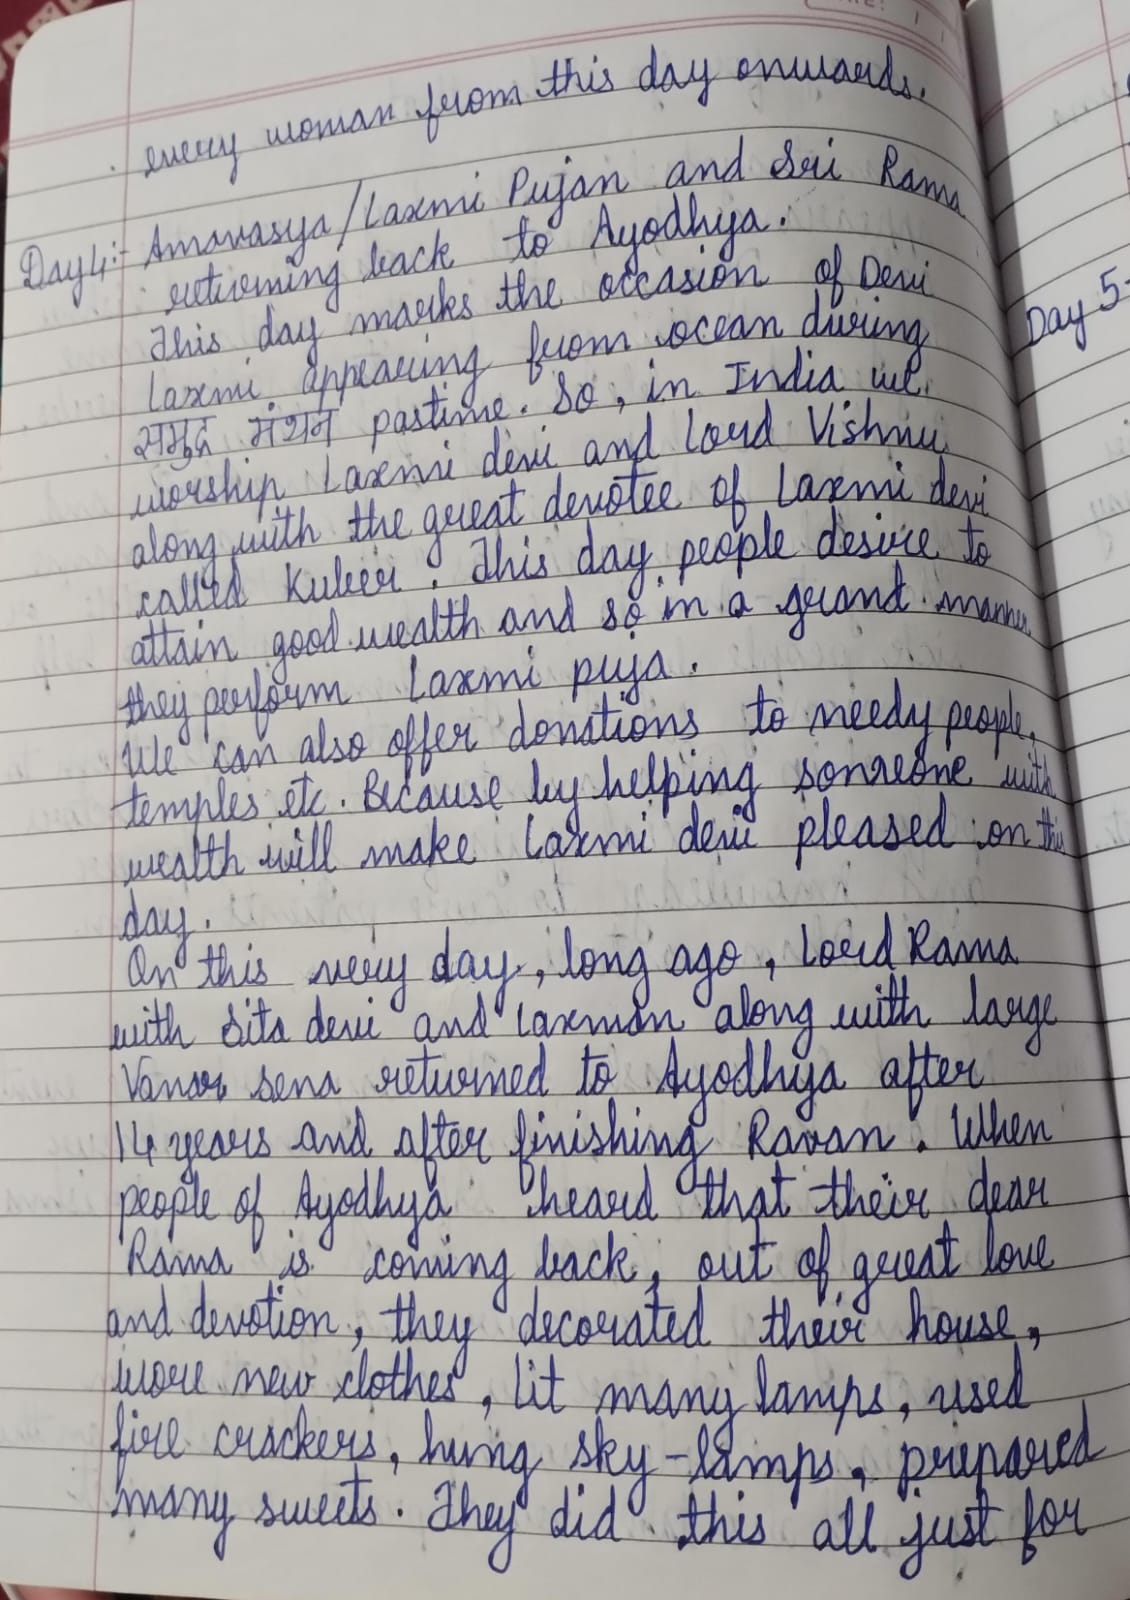 every woman from this day onwards.
Day 4:- Amavasya/Laxmi Pujan and Sri Rama
returning back to Ayodhya.
This day marks the occasion of Devi
Laxmi appearing from ocean during
समुद्र मंथन pastime. So, in India we
worship Laxmi devi and Lord Vishnu
along with the great devotee of Laxmi devi
called Kuber. This day people desire to
attain good wealth and so in a grand manner
they perform Laxmi puja.
We can also offer donations to needy people,
temples etc. Because by helping someone with
wealth will make Laxmi devi pleased on this
day.
On this very day, long ago, Lord Rama
with Sita devi and Laxman along with large
Vanar sena returned to Ayodhya after
14 years and after finishing Ravan. When
people of Ayodhya heard that their dear
Rama is coming back, out of great love
and devotion, they decorated their house,
wore new clothes, lit many lamps, used
fire crackers, hung sky-lamps, prepared
many sweets. They did this all just for
Day 5-